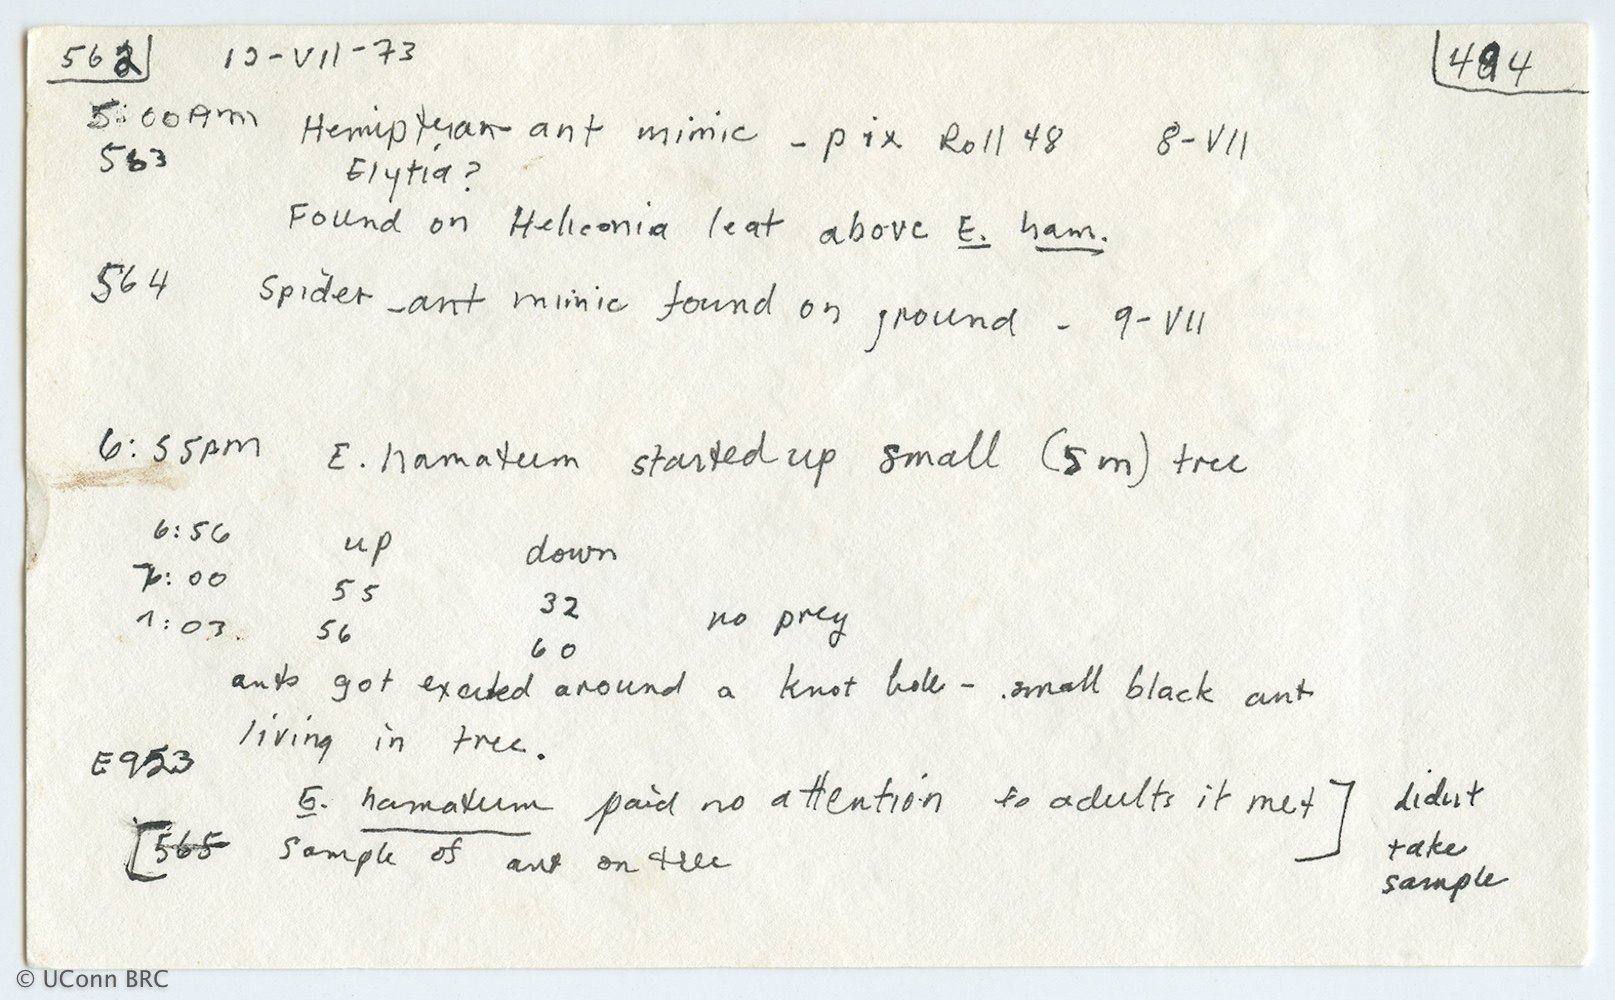 562 12-VII-73 484
5:00Am Hemipteran ant mimic - pix Roll 48 8-VII
563 Elytia?
Found on Heliconia leaf above E. ham.
564 Spider - ant mimic found on ground - 9-VII
6:55pm E. hamatum started up small (5m) tree
6:56 up down
7:00 55 32
7:03. 56 60 no prey
ants got excited around a knot hole - small black ant
living in tree.
E953
E. hamatum paid no attention to adults it met] didnt
[565 sample of ant on tree take
sample
© UConn BRC